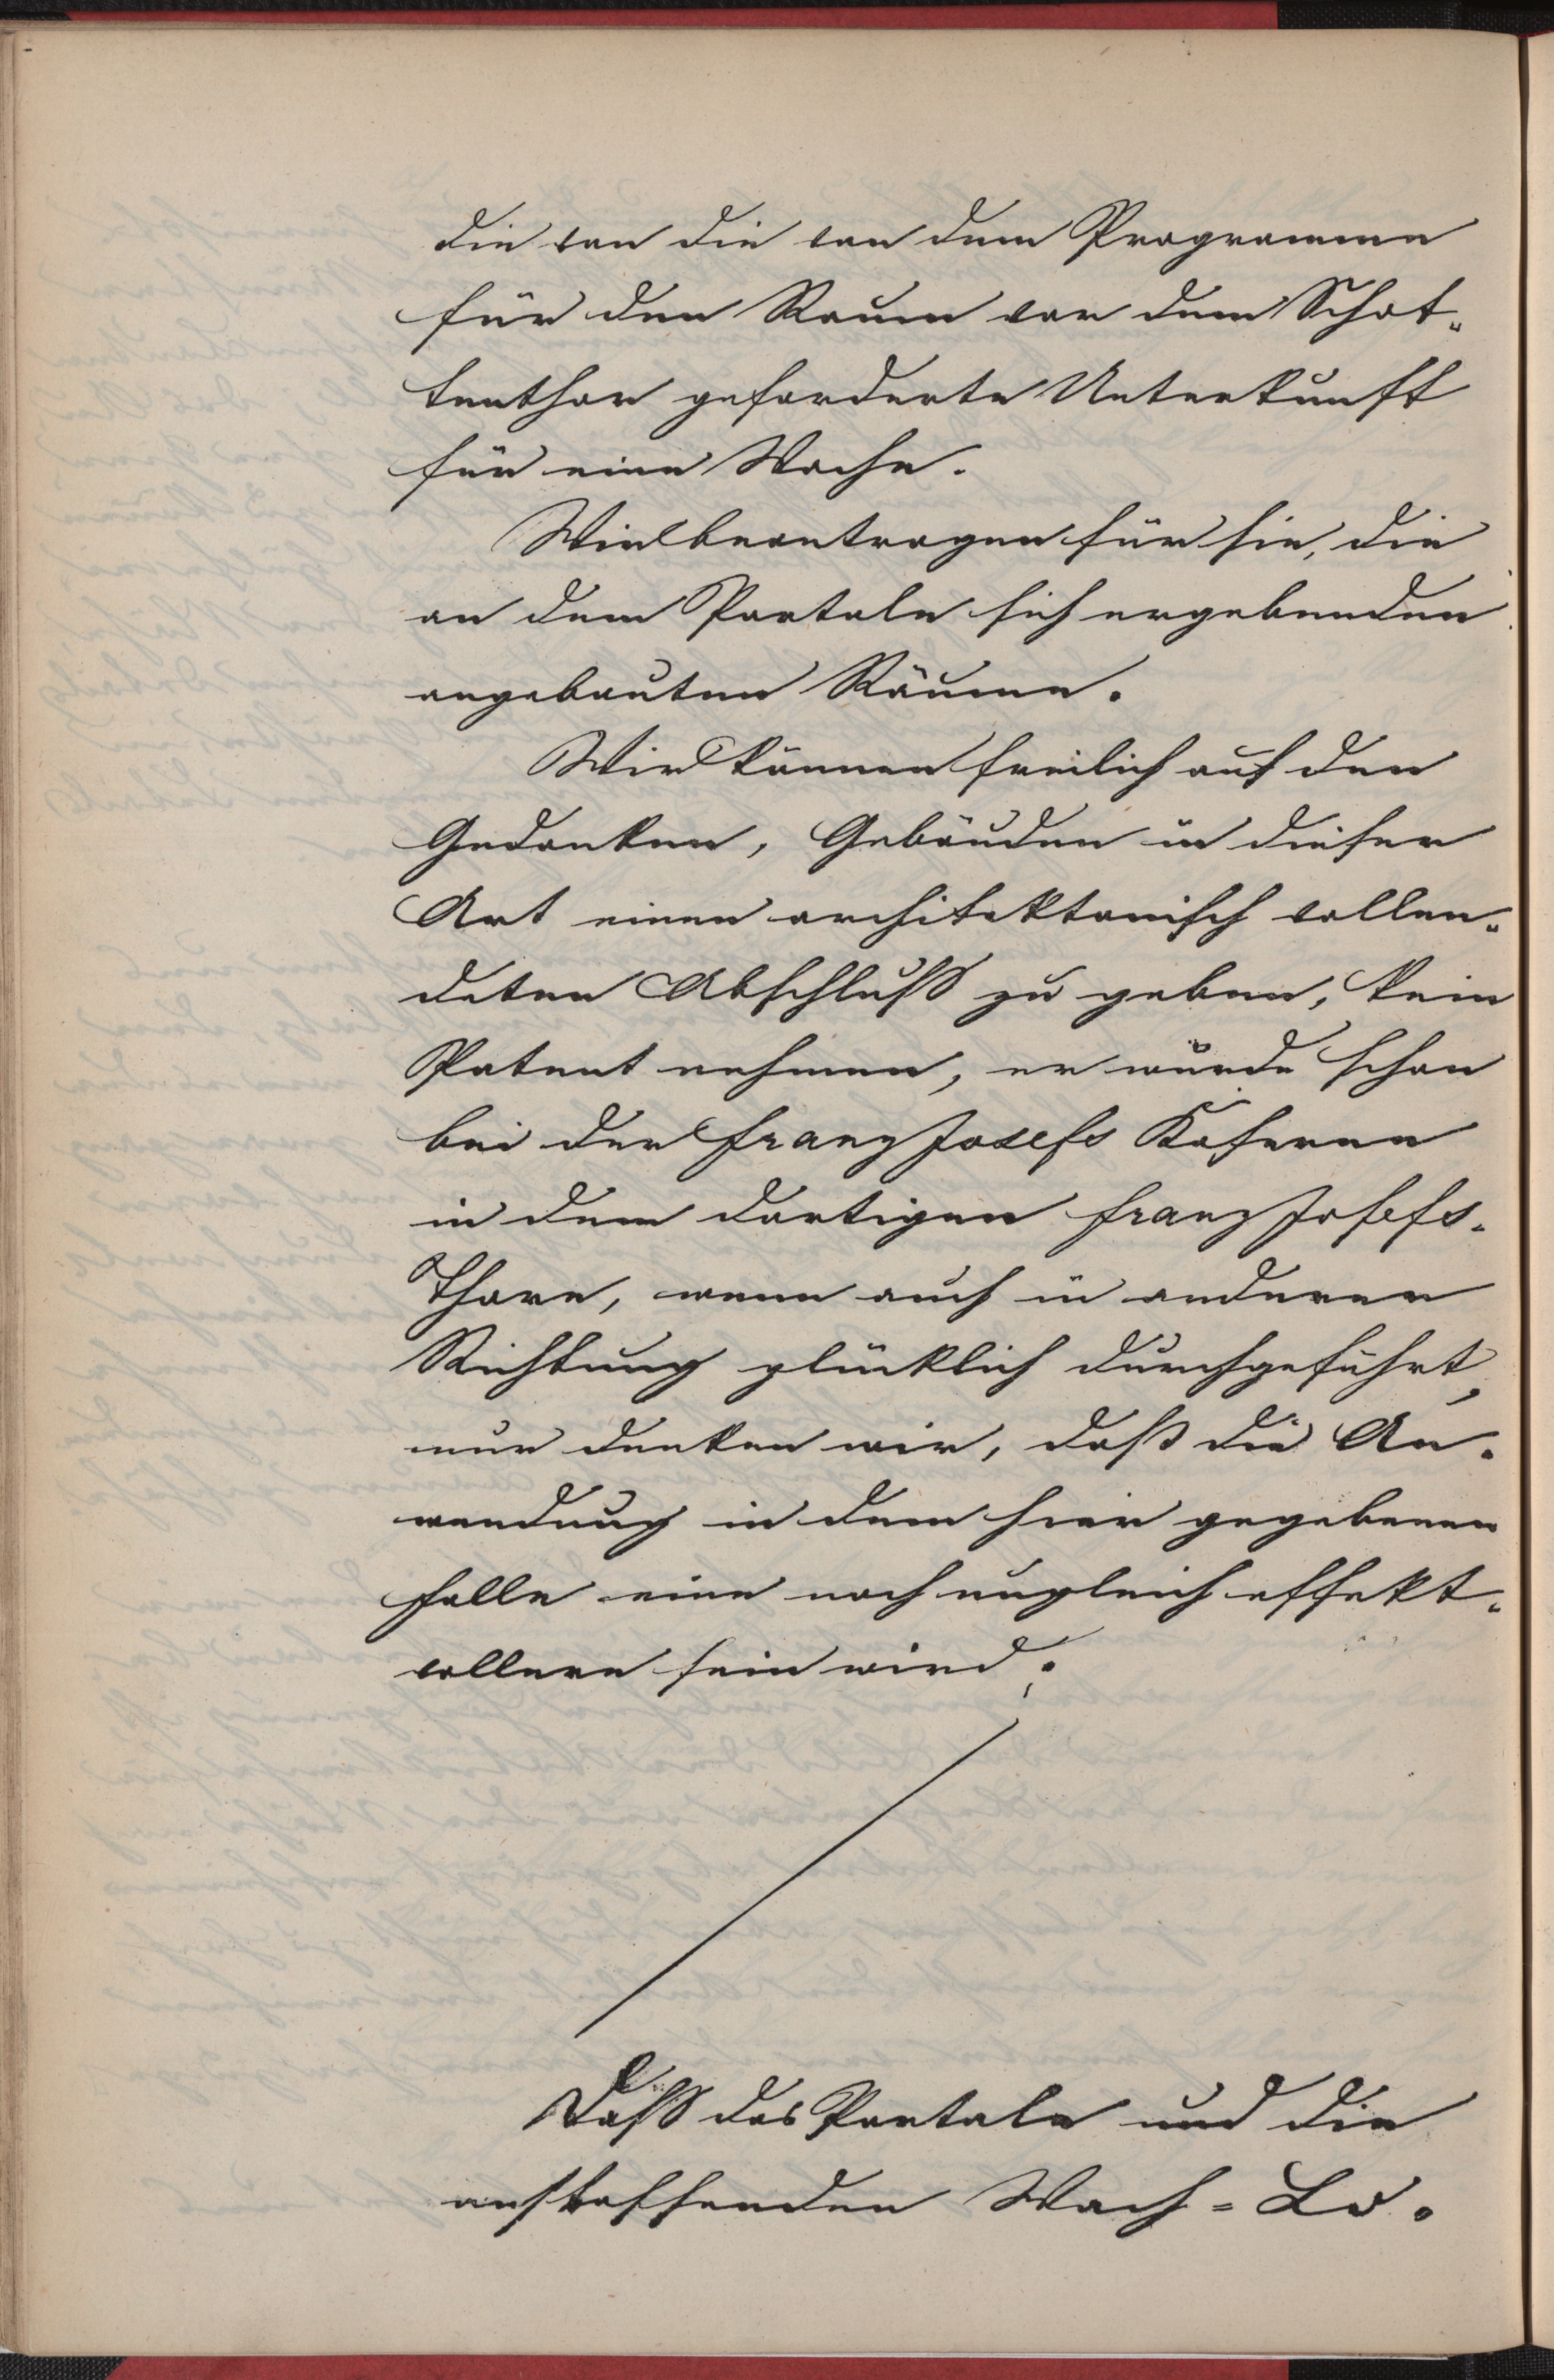 die von die von dem Programme
für den Raum vor dem Schot„
tenthor geforderte Unterkunft
für eine Wache.
Wir beantragen für sie, die
an dem Portale sich ergebenden
angebauten Räume.
Wir können freilich auf den
Gedanken, Gebäuden in dieser
Art einen architektonisch vollen„
deten Abschluß zu geben, kein
Patent nehmen, er wurde schon
bei der Franz Josefs Kaserne
in dem dortigen Franz Josefs-
Thore, wenn auch in anderer
Richtung glücklich durchgeführt,
nur denken wir, daß die An-
wendung in dem hier gegebenen
Falle eine noch ungleich effekt-
vollere sein wird.
Daß das Portale und die
anstossenden Wach=Lo-